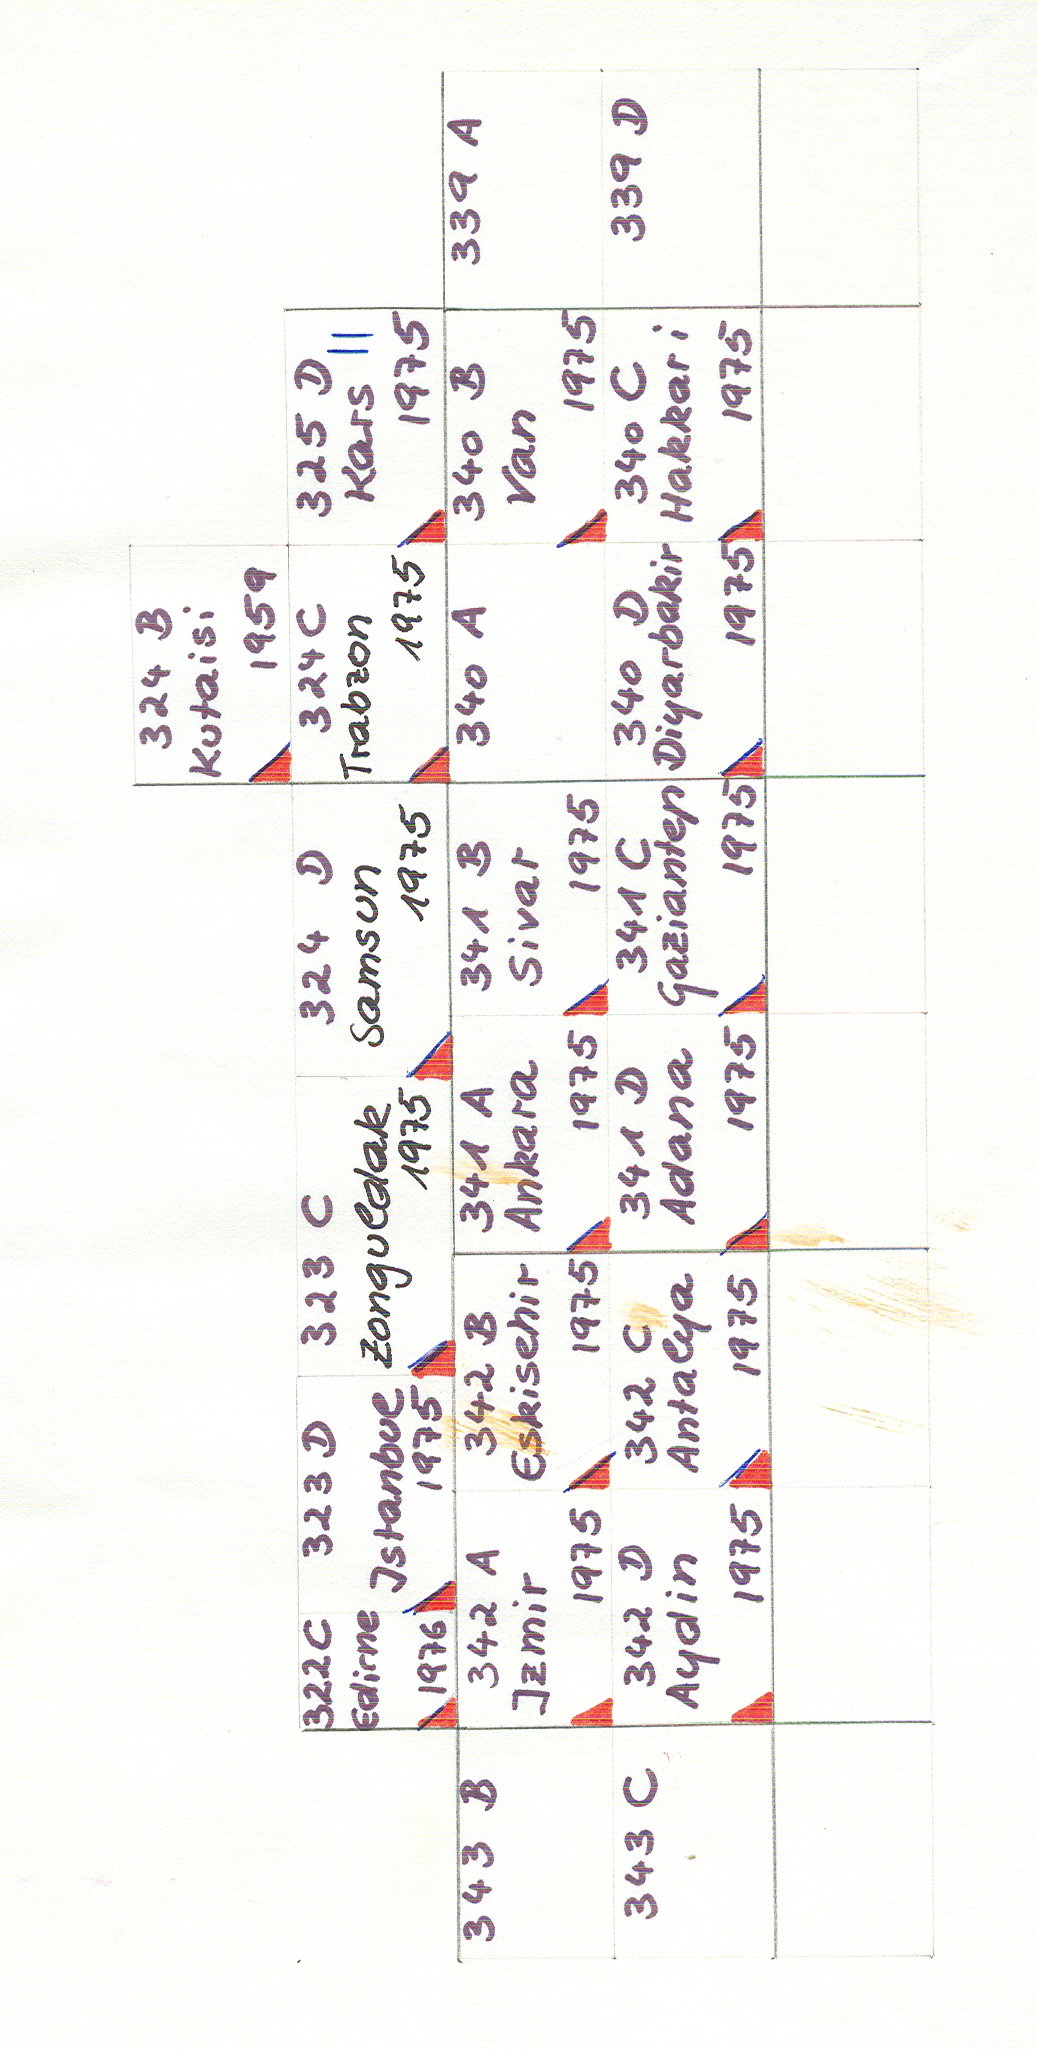 324 B
Kutaisi
1959
322C
Edirne
1976
323 D
Istanbul
1975
323 C
Zonguldak
1975
324 D
Samsun
1975
324 C
Trabzon
1975
325 D
Kars
1975
343 B
342 A
Izmir
1975
342 B
Eskisehir
1975
341 A
Ankara
1975
341 B
Sivar
1975
340 A
340 B
Van
1975
339 A
343 C
342 D
Aydin
1975
342 C
Antalya
1975
341 D
Adana
1975
341 C
Gaziantep
1975
340 D
Diyarbakir
1975
340 C
Hakkari
1975
339 D